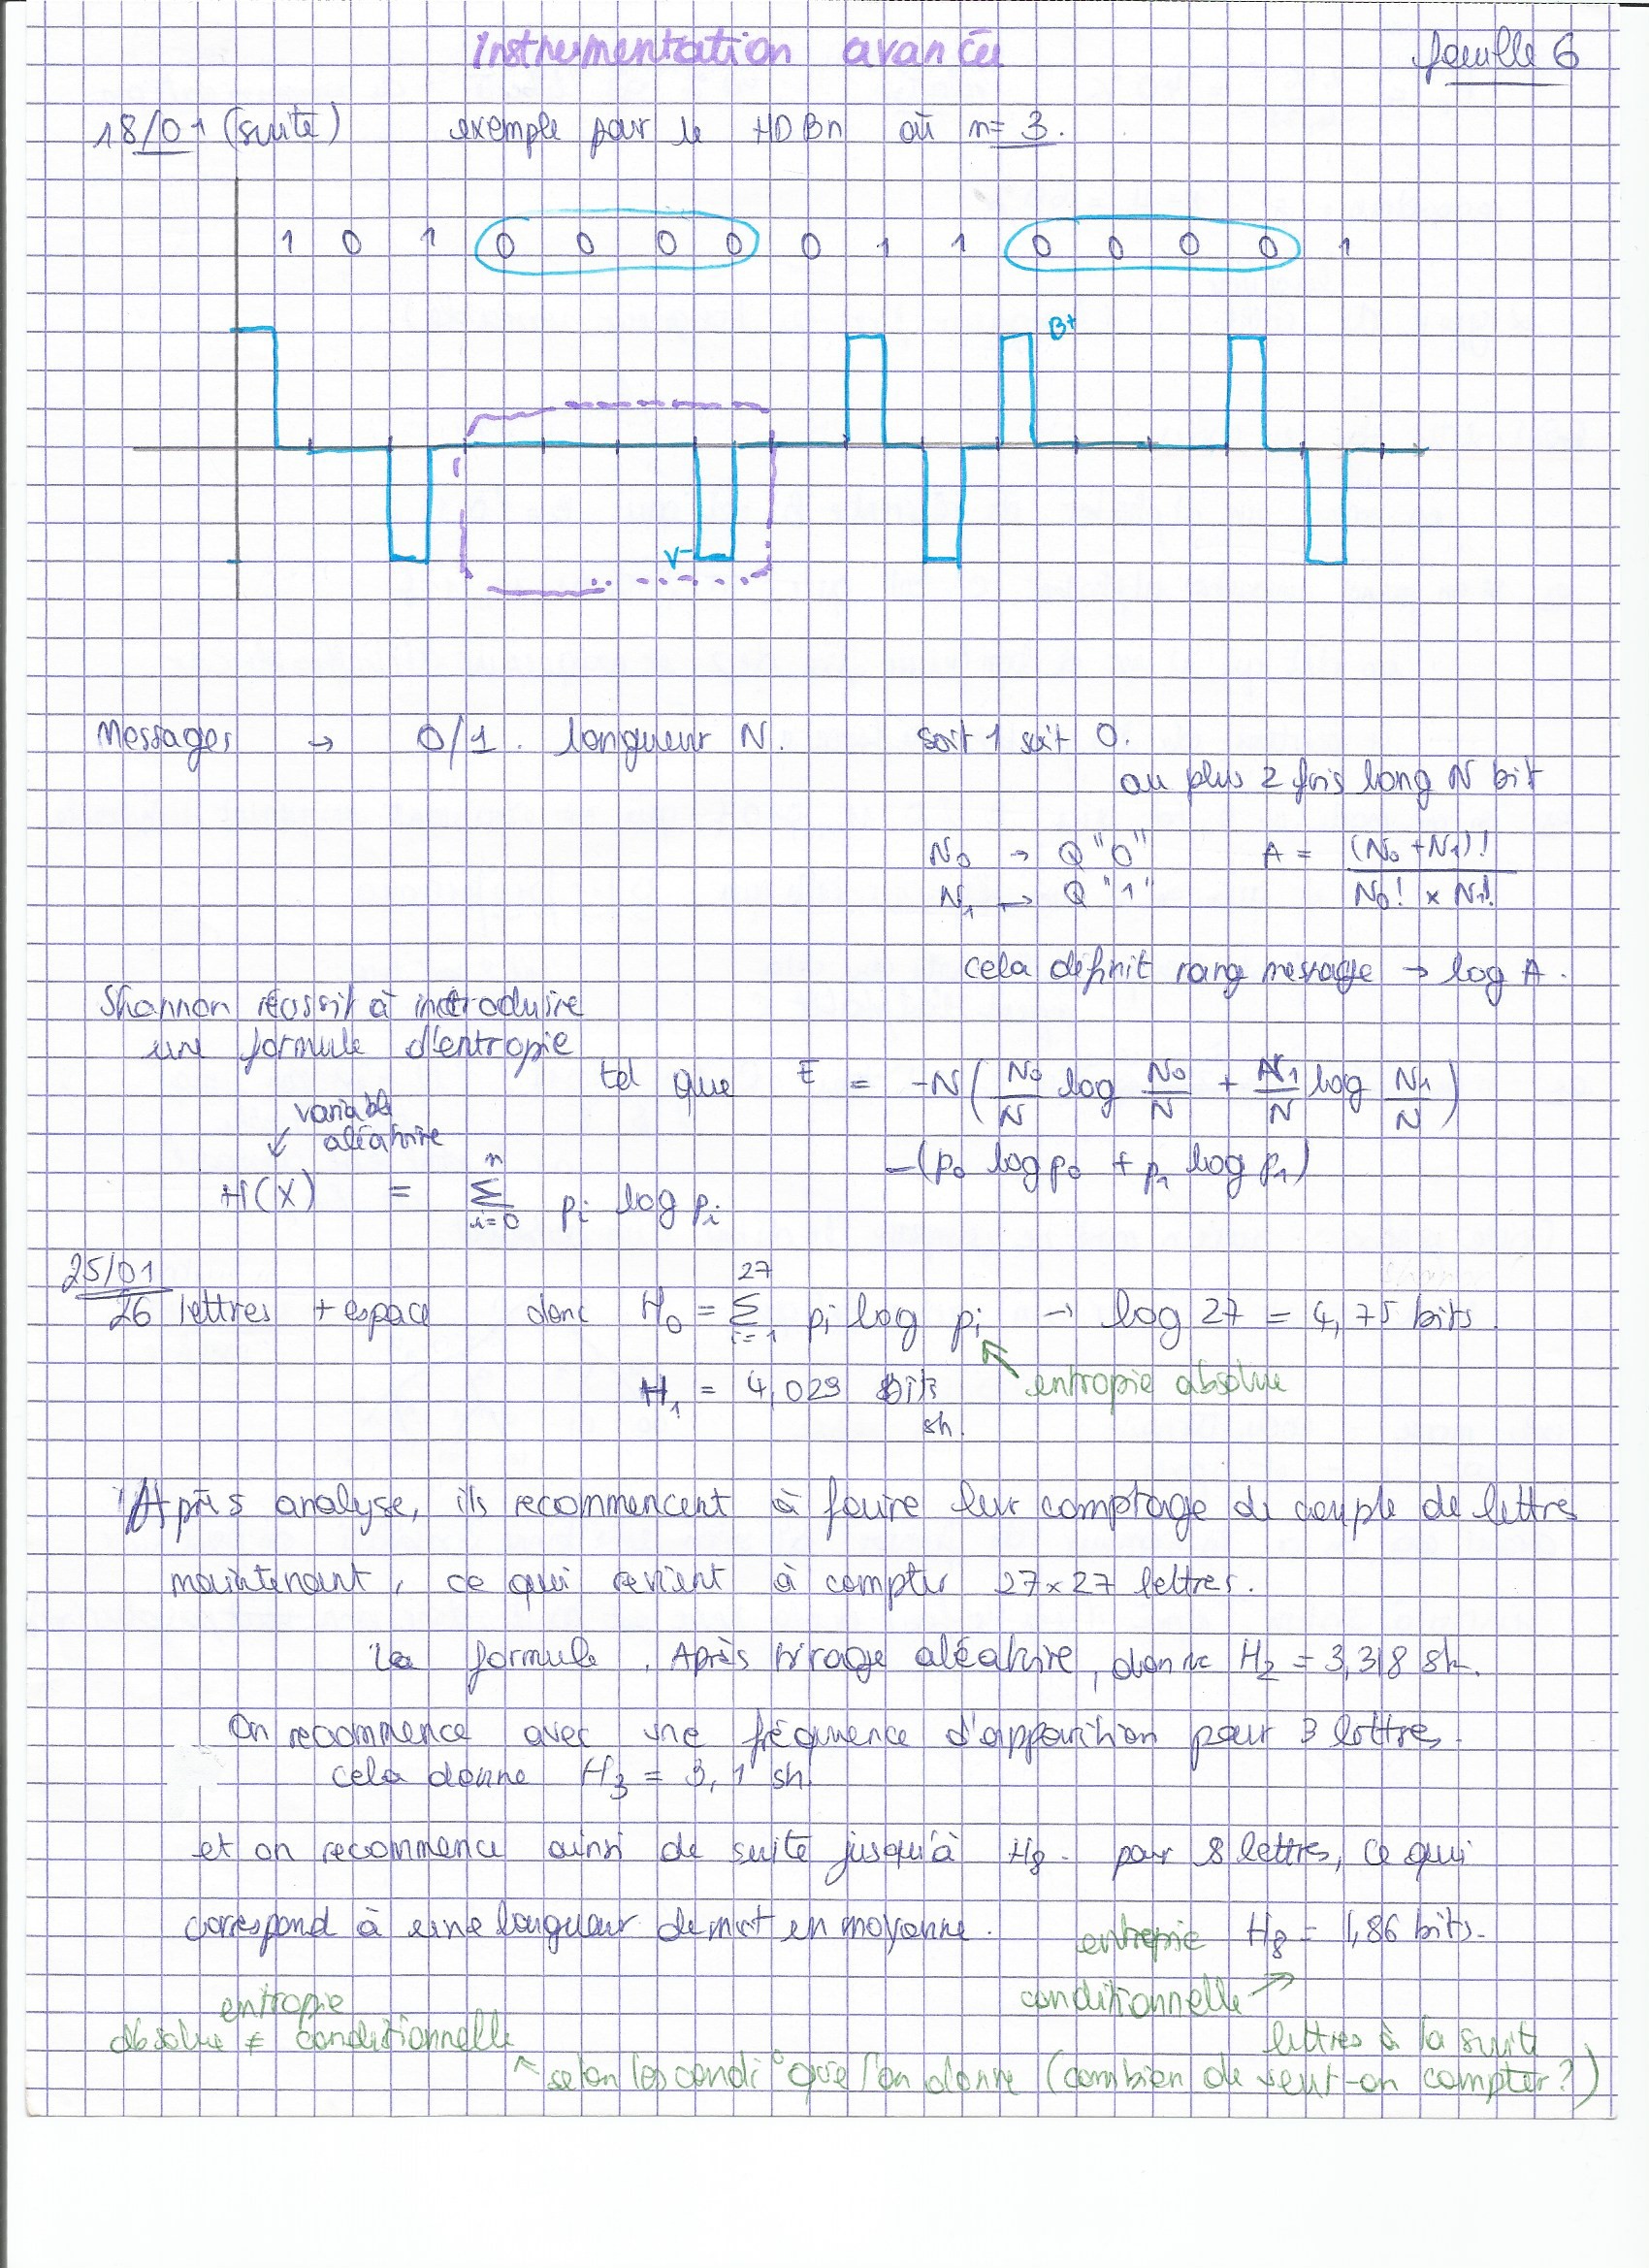 Instrumentation avancée
feuille 6
18/01 (suite) exemple pour le HDBn où n=3.
1 0 1 0 0 0 0 0 1 1 0 0 0 0 1
B+
V-
Messages → 0/1. longueur N. soit 1 soit 0.
au plus 2 fois long N bit
N0 → Q "0" A = (N0 + N1)! / N0! × N1!
N1 → Q "1"
cela définit rang message → log A.
Shannon réussit à introduire
une formule d'entropie
tel que E = -N( N0/N log N0/N + N1/N log N1/N )
variable
aléatoire
-(p0 log p0 + p1 log p1)
H(X) = Σ i=0 n pi log pi
25/01
26 lettres + espace donc H0 = Σ i=1 27 pi log pi → log 27 = 4,75 bits.
H1 = 4,029 bits entropie absolue
sh.
Après analyse, ils recommencent à faire leur comptage de couple de lettres
maintenant, ce qui revient à compter 27×27 lettres.
la formule. Après tirage aléatoire, donne H2 = 3,318 sh.
On recommence avec une fréquence d'apparition pour 3 lettres.
cela donne H3 = 3,1 sh.
et on recommence ainsi de suite jusqu'à H8. pour 8 lettres, ce qui
correspond à une longueur de mot en moyenne. entropie H8 = 1,86 bits.
conditionnelle
entropie
absolue ≠ conditionnelle
lettres à la suite
selon les condi° que l'on donne (combien de veut-on compter?)